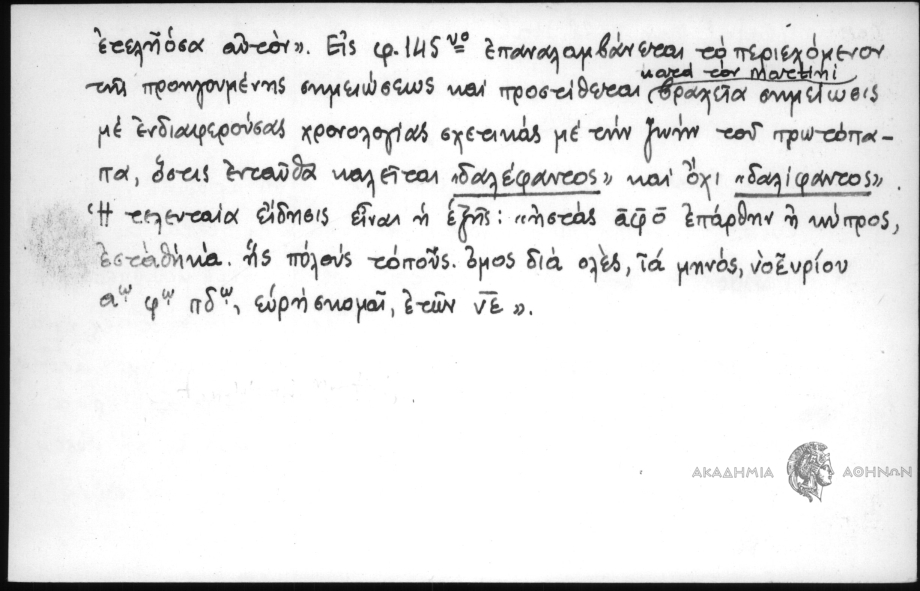 ἐτεληόσα αὐτόν». Εἰς φ. 145 νο ἐπαναλαμβάνεται τὸ περιεχόμενον
κατὰ τὸν Martini
τῆς προηγουμένης σημειώσεως καὶ προστίθεται βραχεῖα σημείωσις
μὲ ἐνδιαφερούσας χρονολογίας σχετικάς μὲ τὴν ζωὴν τοῦ πρωτόπα-
πα, ὅστις ἐνταῦθα καλεῖται «δαλέφαντος» καὶ ὄχι «δαλίφαντος».
Ἡ τελευταία εἴδησις εἶναι ἡ ἑξῆς: «ἡστὰς αφο ἐπάρθην ἡ κύπρος,
ἐστάθηκα. ἡς πόλους τόποῦς. ὅμος διὰ ολὲς, τά μηνός, νοεμρίου
αω φω πδω, εὑρήσκομαι, ἐτῶν νε».
ΑΚΑΔΗΜΙΑ ΑΘΗΝΩΝ